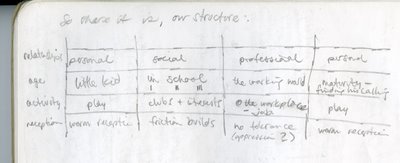 So there it is, our structure:
relationships personal social professional personal
age little kid in school the working world maturity -
finding his calling
I II III
activity play clubs + interests the workplace play
- job
reception warm reception friction builds no tolerance warm reception
(oppression?)